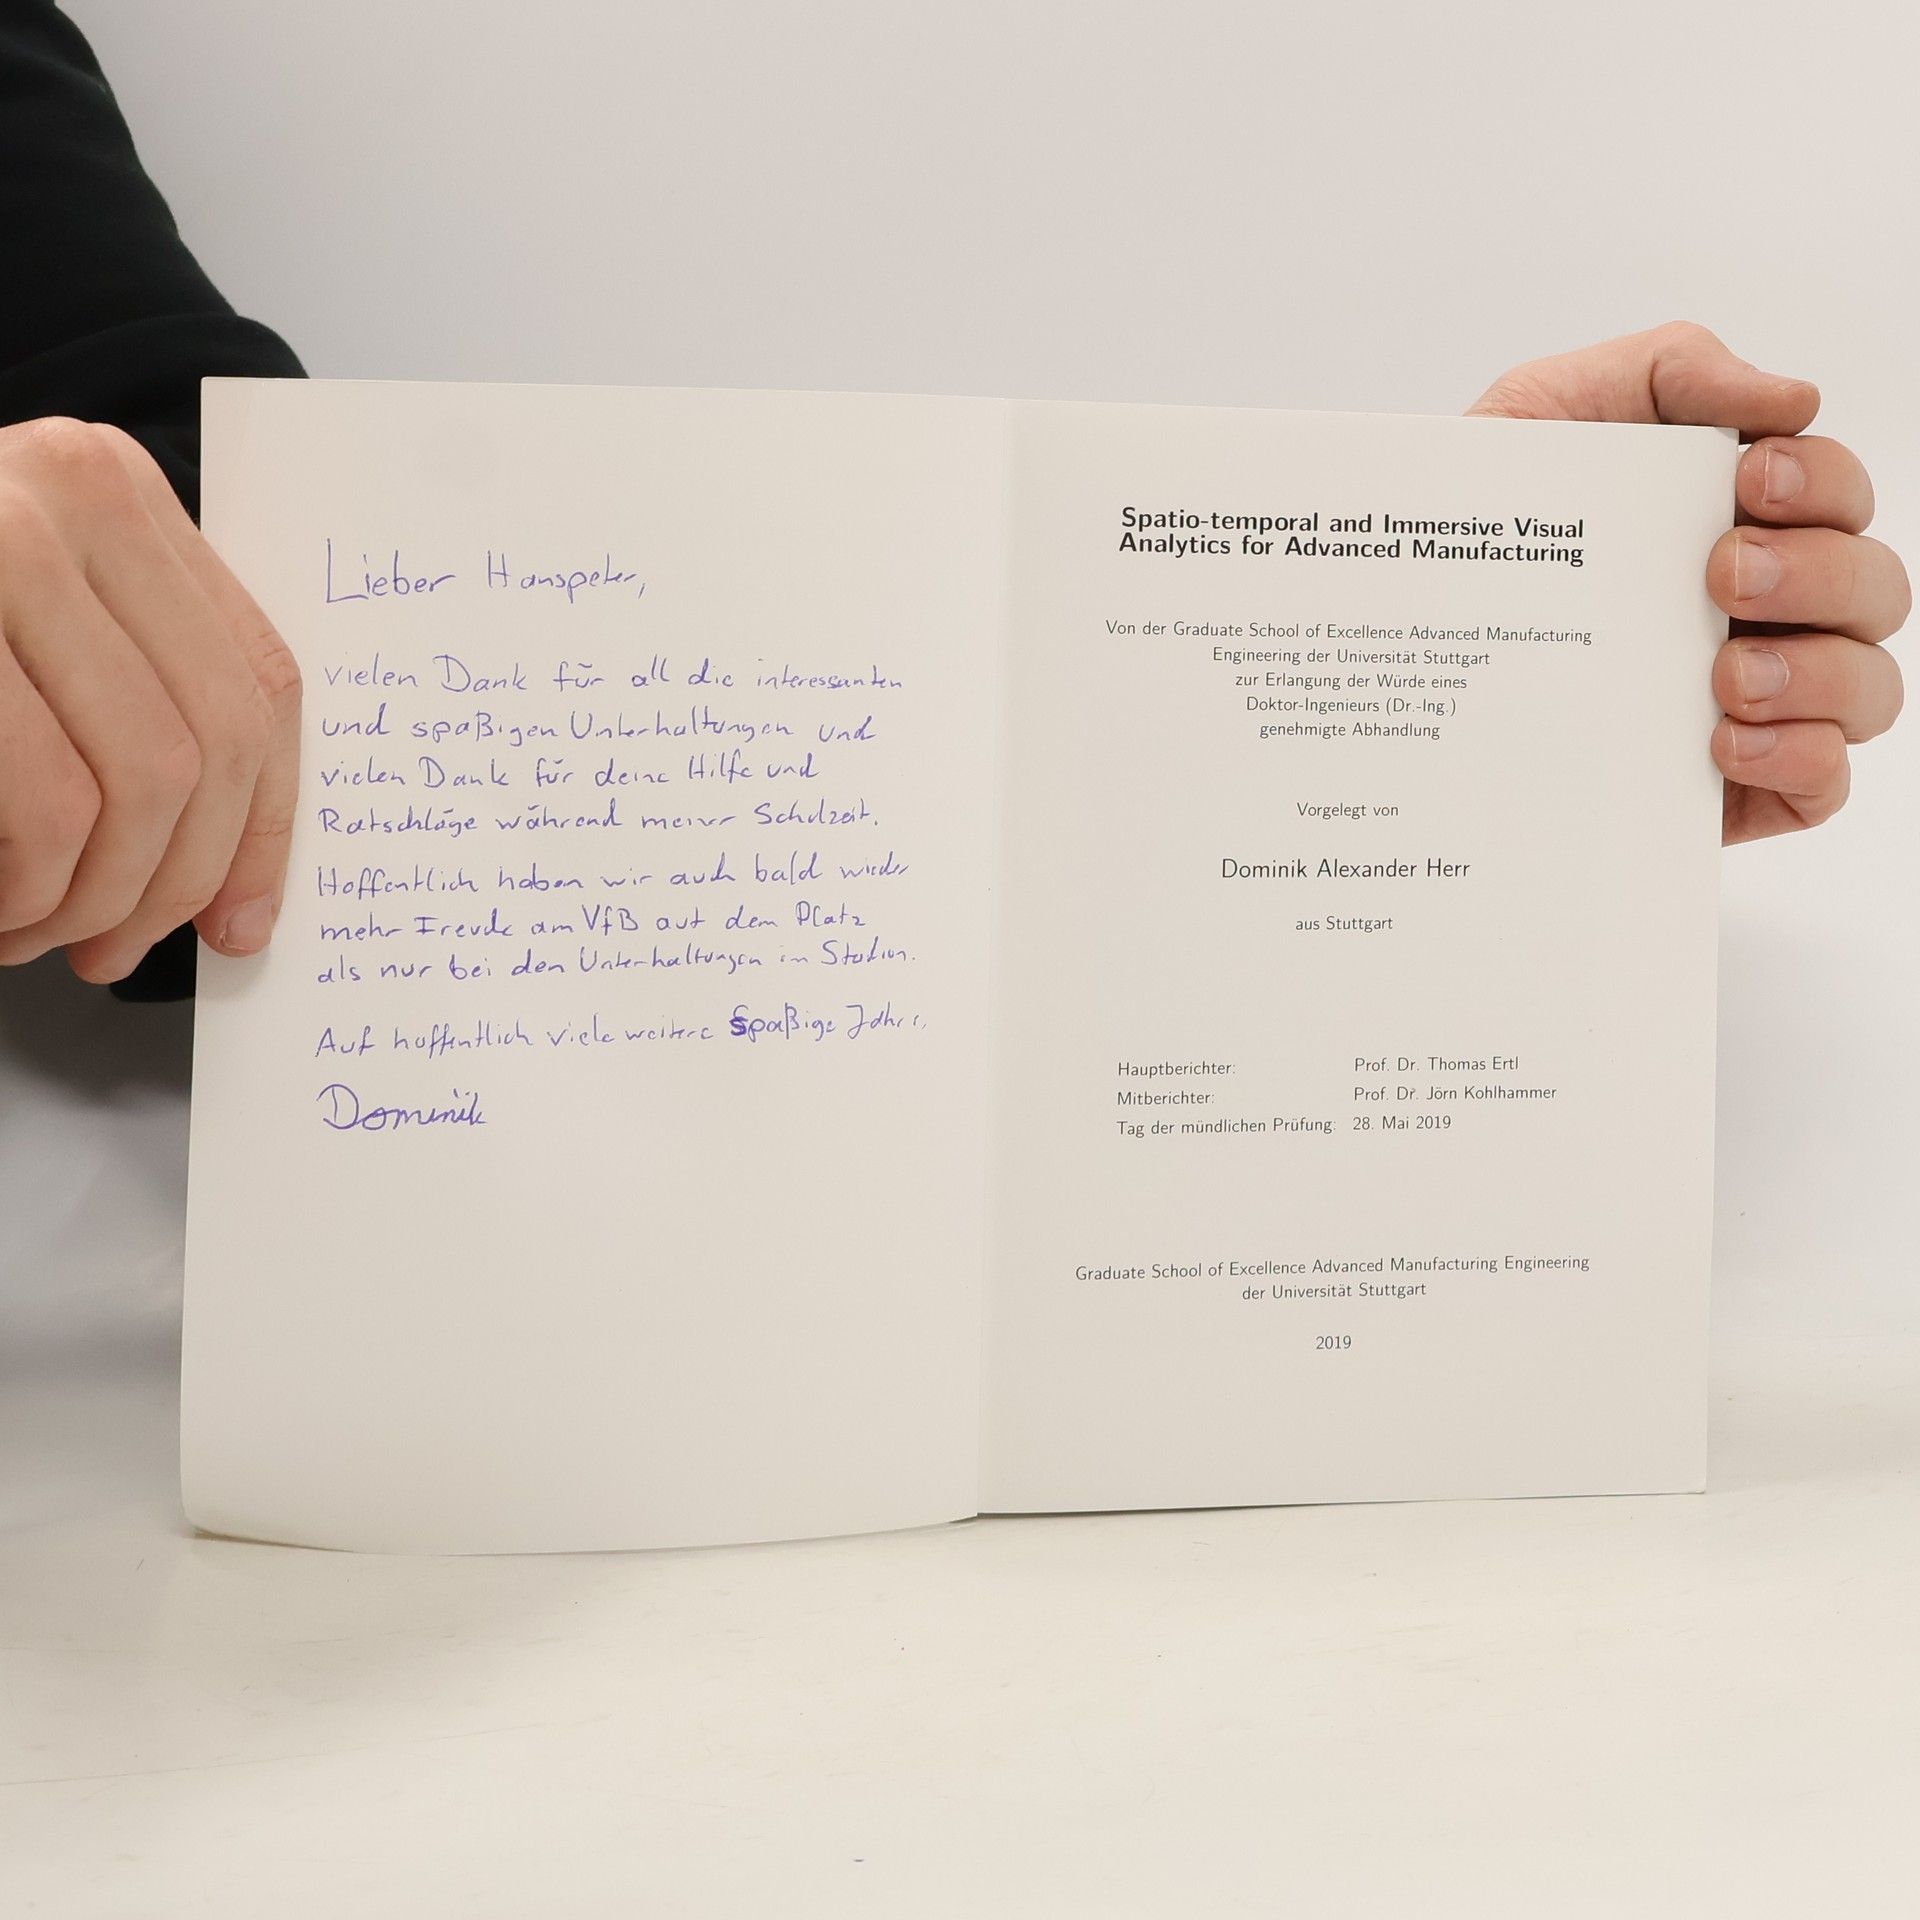 Lieber Hanspeter,
vielen Dank für all die interessanten
und spaßigen Unterhaltungen und
vielen Dank für deine Hilfe und
Ratschläge während meiner Schulzeit.
Hoffentlich haben wir auch bald wieder
mehr Freude am VfB auf dem Platz
als nur bei den Unterhaltungen im Stadion.
Auf hoffentlich viele weitere spaßige Jahre,
Dominik
Spatio-temporal and Immersive Visual
Analytics for Advanced Manufacturing
Von der Graduate School of Excellence Advanced Manufacturing
Engineering der Universität Stuttgart
zur Erlangung der Würde eines
Doktor-Ingenieurs (Dr.-Ing.)
genehmigte Abhandlung
Vorgelegt von
Dominik Alexander Herr
aus Stuttgart
Hauptberichter: Prof. Dr. Thomas Ertl
Mitberichter: Prof. Dr. Jörn Kohlhammer
Tag der mündlichen Prüfung: 28. Mai 2019
Graduate School of Excellence Advanced Manufacturing Engineering
der Universität Stuttgart
2019